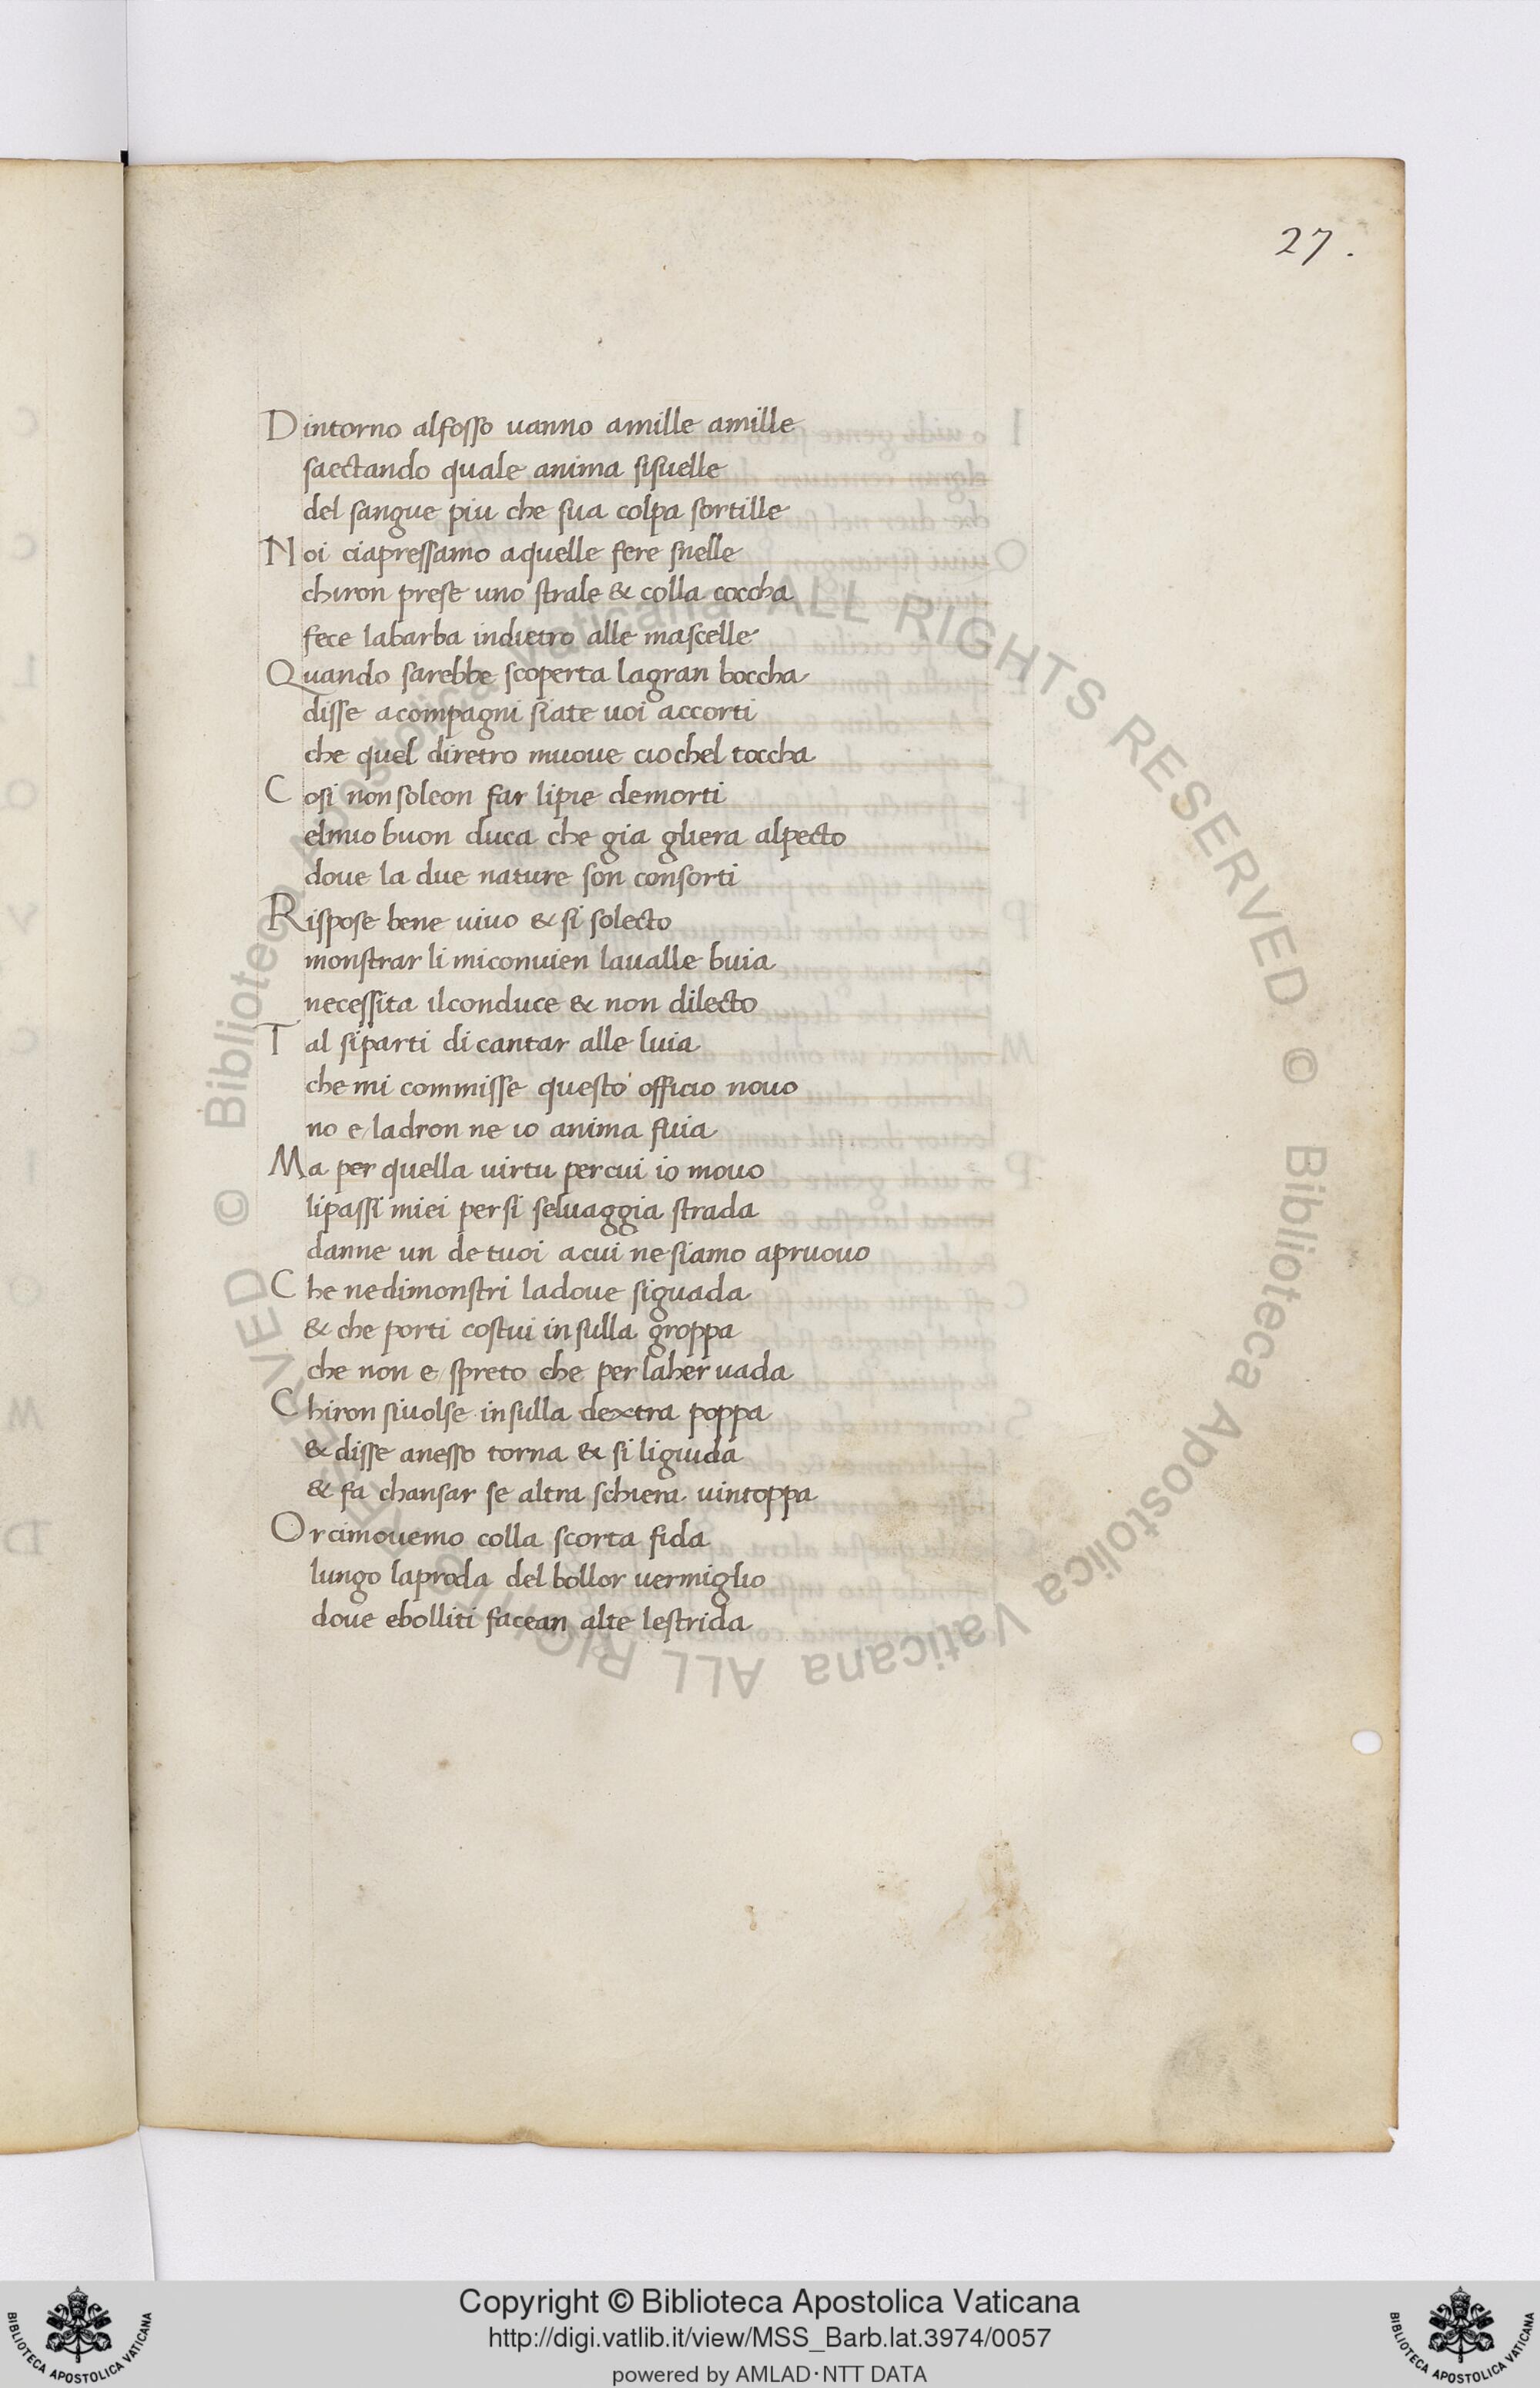 27.
Dintorno alfosso uanno amille amille
saectando quale anima sisuelle
del sangue piu che sua colpa sortille
Noi ciapressamo aquelle fere snelle
chiron prese uno strale & colla coccha
fece labarba indietro alle mascelle
Quando sarebbe scoperta lagran boccha
disse acompagni siate uoi accorti
che quel diretro muoue ciochel toccha
Cosi nonsoleon far lipie demorti
elmio buon duca che gia gliera alpecto
doue la due nature son consorti
Rispose bene uiuo & si solecto
monstrar li miconuien laualle buia
necessita ilconduce & non dilecto
Tal siparti di cantar alle luia
che mi commisse questo officio nouo
no e ladron ne io anima fuia
Ma per quella uirtu percui io mouo
lipassi miei persi seluaggia strada
danne un de tuoi acui ne siamo apruouo
Che nedimonstri ladoue siguada
& che porti costui insulla groppa
che non e spreto che perlaher uada
Chiron siuolse insulla dextra poppa
& disse anesso torna & si liguida
& fa chansar se altra schiera uintoppa
Or cimouemo colla scorta fida
lungo laproda del bollor uermiglio
doue ebolliti facean alte lestrida
© Biblioteca Apostolica Vaticana ALL RIGHTS RESERVED © Biblioteca Apostolica Vaticana ALL RIGHTS RESERVED
Copyright © Biblioteca Apostolica Vaticana
http://digi.vatlib.it/view/MSS_Barb.lat.3974/0057
powered by AMLAD·NTT DATA
BIBLIOTECA APOSTOLICA VATICANA
BIBLIOTECA APOSTOLICA VATICANA